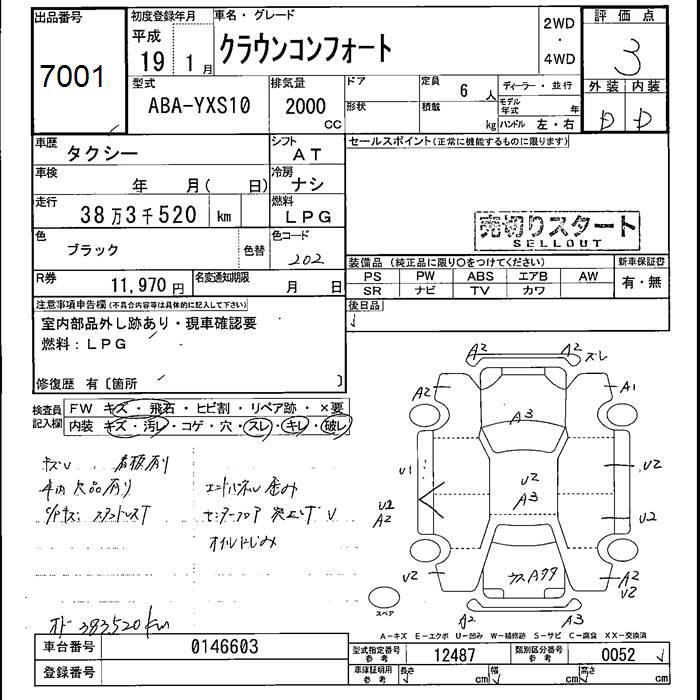 出品番号
7001
初度登録年月
平成
19 1月
車名・グレード
クラウンコンフォート
2WD
・
4WD
評価点
3
外装 内装
D D
型式
ABA-YXS10
排気量
2000
CC
ドア
形状
定員
6人
積載
kg
ディーラー・並行
モデル年式 年
ハンドル 左・右
車歴
タクシー
シフト
AT
セールスポイント(正常に機能するものに限ります)
車検
年 月( 日)
冷房
ナシ
走行
38万3千520 km
燃料
LPG
売切りスタート
SELLOUT
色
ブラック
色替
色コード
202
装備品(純正品に限り○をつけてください)
新車保証書
PS PW ABS エアB AW
SR ナビ TV カワ
有・無
R券
11,970円
名変通知期限
月 日
後日品
注意事項申告欄(不具合内容等は具体的に記入して下さい)
室内部品外し跡あり・現車確認要
燃料:LPG
修復歴 有〔箇所 〕
検査員記入欄
FW キズ・飛石・ヒビ割・リペア跡・×要
内装 キズ・汚レ・コゲ・穴・スレ・キレ・破レ
キズU 看板有り
車内欠品有り
エンドパネル歪み
センターフロア突上ゲU
オイルにじみ
オド 383520km
A2 A2 ズレ
A2 A1
A3
U1 U2
U2
A3
U2
A2
U2
U2 A2
U2
A2 A3
スペア
A-キズ E-エクボ U-凹み W-補修跡 S-サビ C-腐食 XX-交換済
車台番号
0146603
登録番号
型式指定番号
参考
12487
類別区分番号
参考
0052
車庫証明用
参考
長さ cm 幅 cm 高さ cm